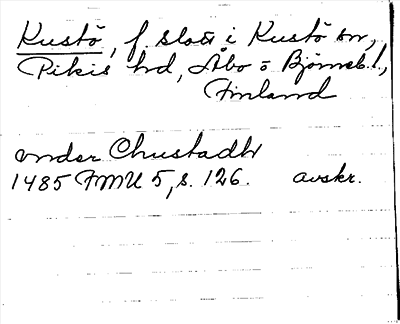 Kustö, f. slott i Kustö sn,
Pikis hd, Åbo o Björneb. l,
Finland
under Chustadh
1485 FMU 5, s. 126. avskr.